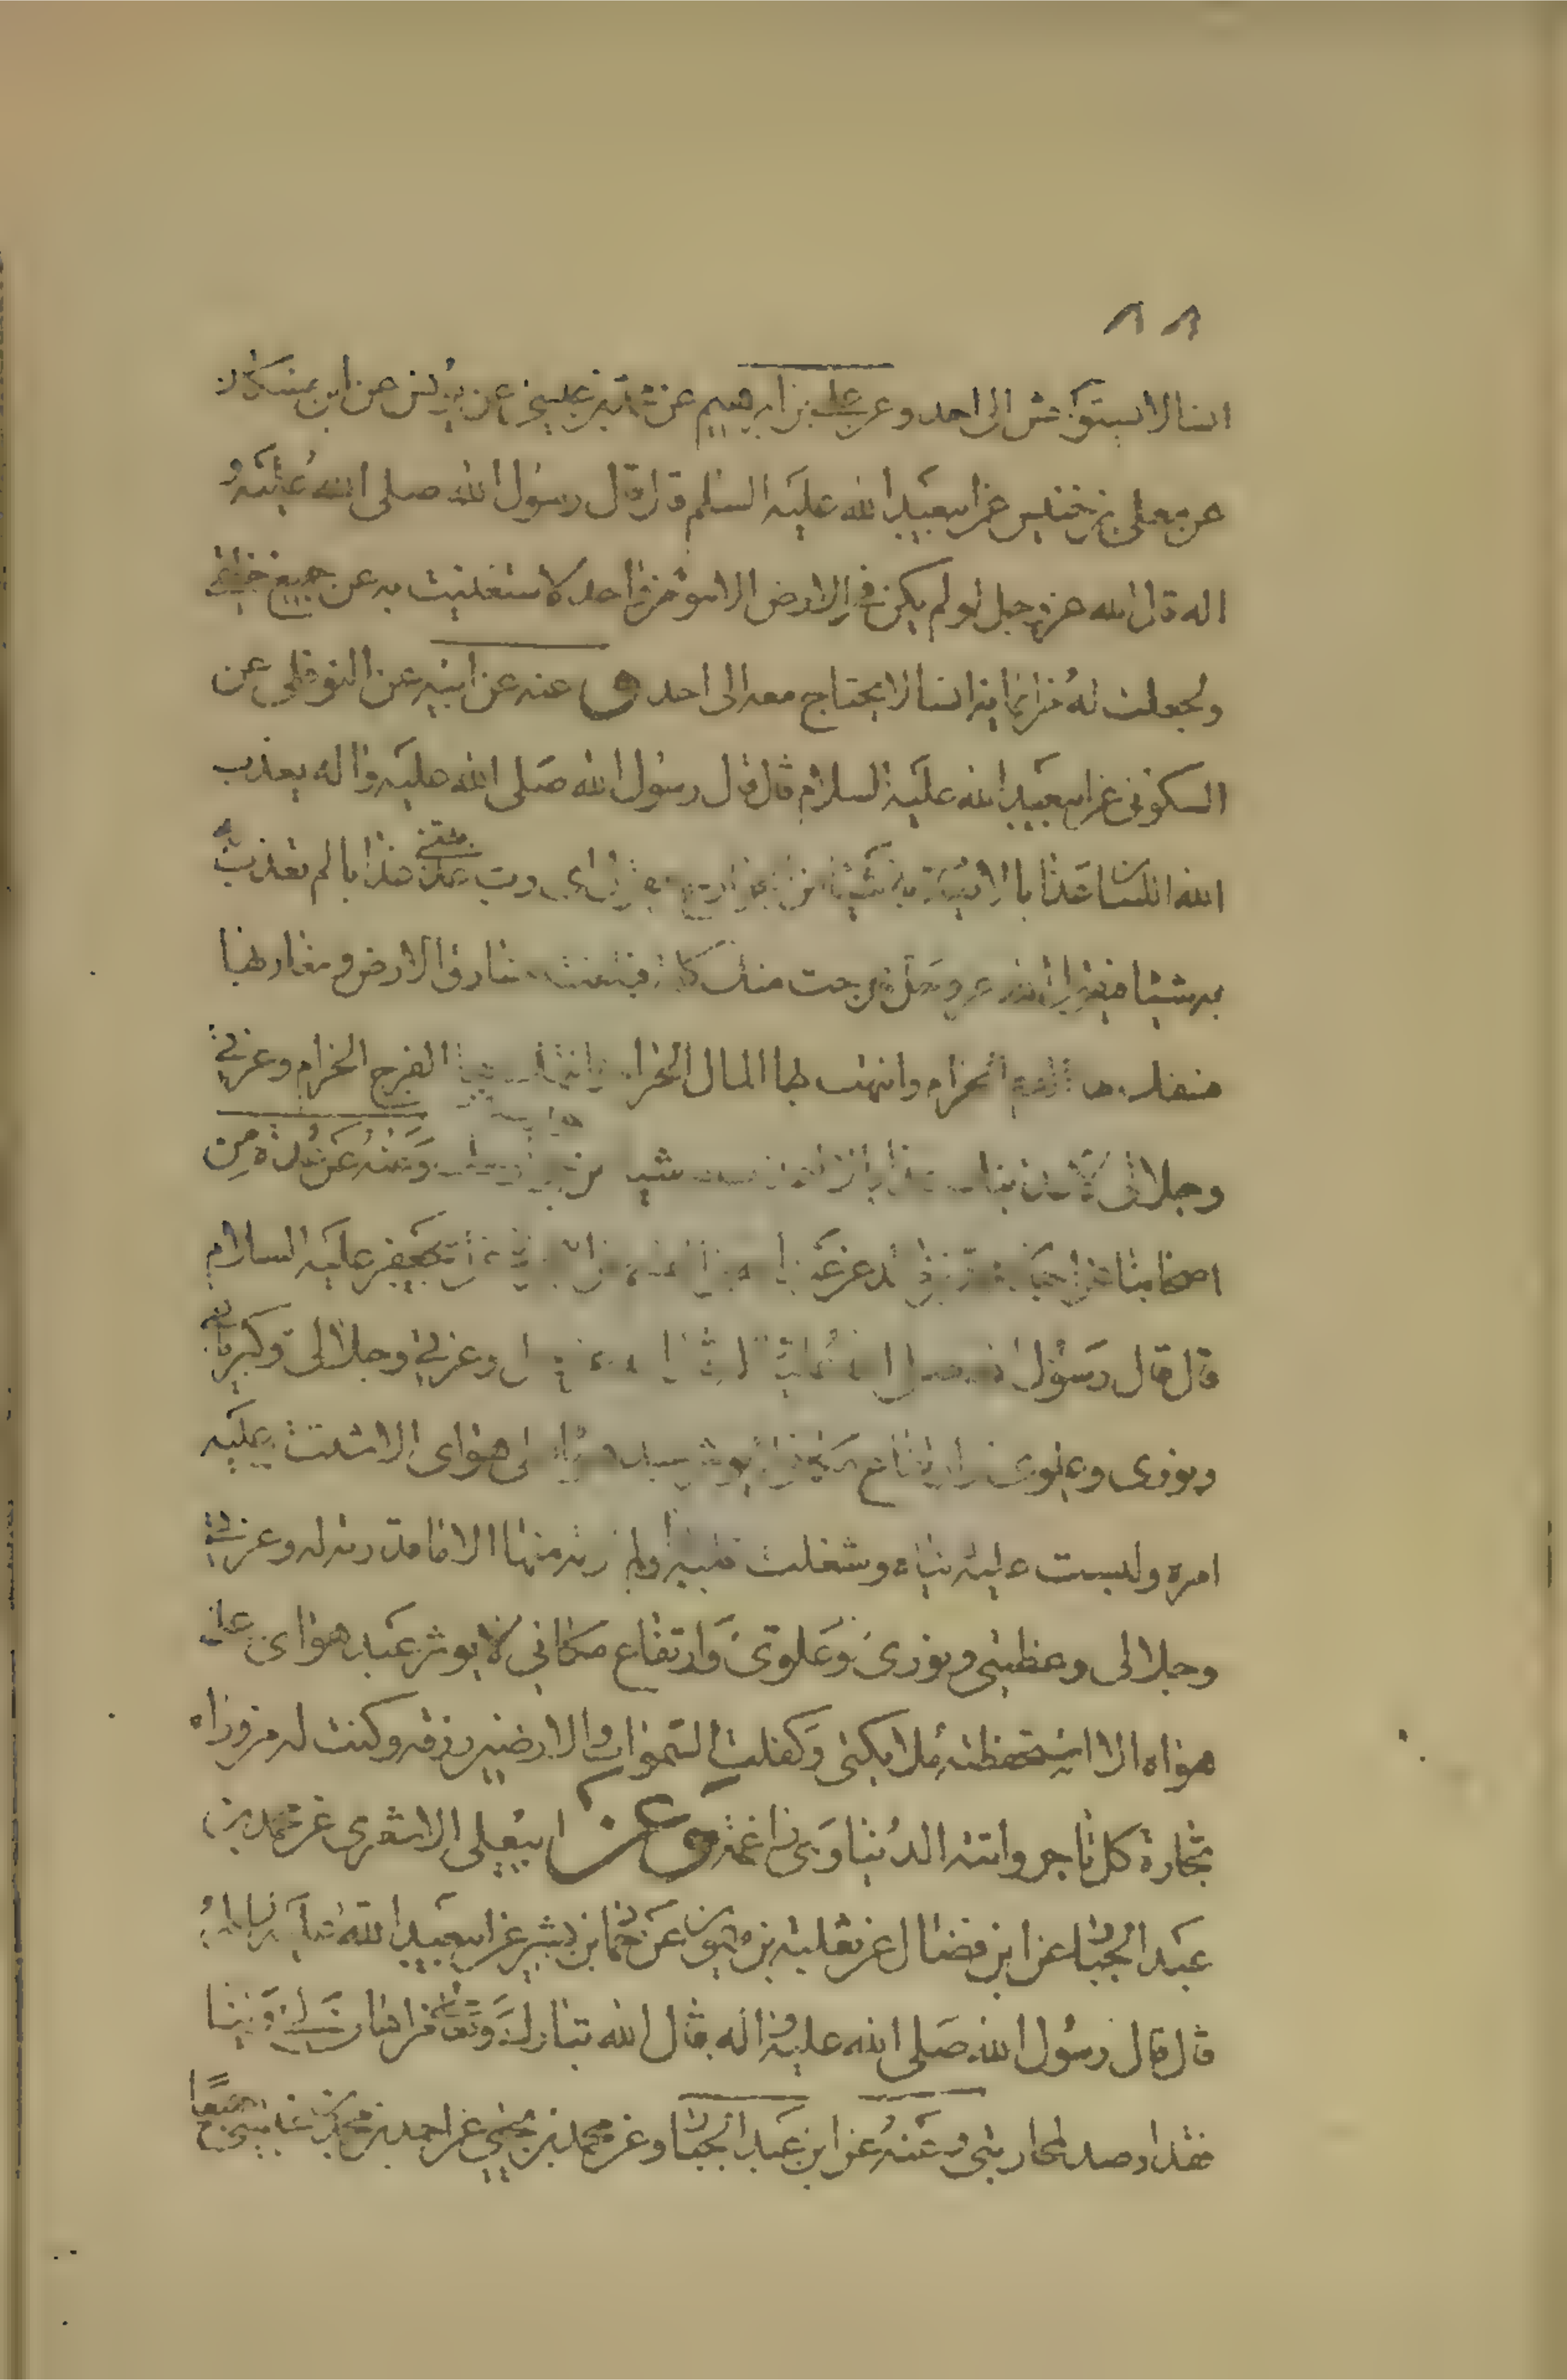 ٨٨
انسا لا يستوحش الى احد وعن علي بن ابرهيم عن محمد بن عيسى عن يونس عن ابن مسكان
عن معلى بن خنيس عن ابي عبد الله عليه السلم قال قال رسول الله صلى الله عليه و
اله قال الله عز وجل لو لم يكن في الارض الا مؤمن واحد لاستغنيت به عن جميع خلقي
ولجعلت له من ايمانه انسا لا يحتاج معه الى احد و عنه عن ابيه عن النوفلي عن
السكوني عن ابي عبد الله عليه السلام قال قال رسول الله صلى الله عليه واله يعذب
الله اللسان عذابا لا يعذب به شيئا من الجوارح فيقول اي رب عذبتني عذابا لم تعذب
به شيئا فيقول الله عز وجل خرجت منك كلمة فبلغت مشارق الارض ومغاربها
فسفك بها الدم الحرام وانتهب بها المال الحرام وانتهك بها الفرج الحرام وعزتي
وجلالي لاعذبنك وعنه عن عدة من
اصحابنا جعفر عليه السلام
قال قال رسول الله صلى الله عليه وعزتي وجلالي وكبريائي
ونوري وعلوي وارتفاع مكاني لا يوثر عبد هواه على هواي الا شتت عليه
امره ولبست عليه دنياه وشغلت قلبه ولم اوته منها الا ما قدرت له وعزتي
وجلالي وعظمتي ونوري وعلوي وارتفاع مكاني لا يوثر عبد هواي على
هواه الا استحفظته ملائكتي وكفلت السموات والارضين رزقه وكنت له من وراء
تجارة كل تاجر واتته الدنيا وهي راغمة وعن ابي علي الاشعري عن محمد بن
عبد الجبار عن ابن فضال عن ثعلبة بن ميمون عن حماد بن بشير عن ابي عبد الله عليه السلام
قال قال رسول الله صلى الله عليه واله قال الله تبارك وتعالى من اهان لي وليا
فقد ارصد لمحاربتي وعنه عن ابن عبد الجبار وعن محمد بن يحيى عن احمد بن محمد بن عيسى جميعا